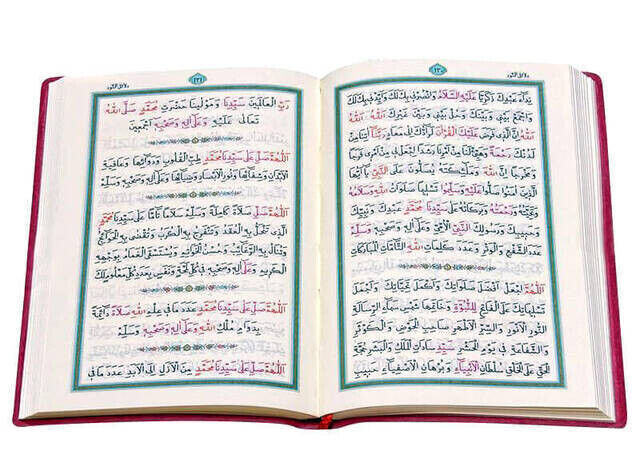 ١٣٠
عَبْدِكَ زَكَرِيَّا عَلَيْهِ السَّلَامُ
بَيْنِي وَبَيْنَكَ وَحُلْ بَيْنِي وَبَيْنَ غَيْرِكَ اللّٰهُ اللّٰهُ
اللّٰهُ إِنَّ الَّذِي فَرَضَ عَلَيْكَ الْقُرْآنَ لَرَادُّكَ إِلَى مَعَادٍ رَبَّنَا آتِنَا مِنْ
لَدُنْكَ رَحْمَةً وَهَيِّئْ لَنَا مِنْ أَمْرِنَا
إِنَّ اللّٰهَ وَمَلٰئِكَتَهُ يُصَلُّونَ عَلَى النَّبِيِّ يَا أَيُّهَا
الَّذِينَ آمَنُوا صَلُّوا عَلَيْهِ وَسَلِّمُوا تَسْلِيمًا صَلَوَاتُ اللّٰهِ وَسَلَامُهُ
وَتَحِيَّتُهُ وَرَحْمَتُهُ وَبَرَكَاتُهُ عَلَى سَيِّدِنَا مُحَمَّدٍ عَبْدِكَ وَنَبِيِّكَ
وَحَبِيبِكَ وَرَسُولِكَ النَّبِيِّ الْأُمِّيِّ وَعَلَى آلِهِ وَصَحْبِهِ وَسَلِّمْ
عَدَدَ الشَّفْعِ وَالْوَتْرِ وَعَدَدَ كَلِمَاتِ اللّٰهِ التَّامَّاتِ الْمُبَارَكَاتِ
اللّٰهُمَّ اجْعَلْ أَفْضَلَ صَلَوَاتِكَ وَأَكْمَلَ تَحِيَّاتِكَ وَاجْعَلْ
تَسْلِيمَاتِكَ عَلَى الْفَاتِحِ لِلنُّبُوَّةِ وَخَاتِمِهَا شَمْسِ سَمَاءِ الرِّسَالَةِ
النُّورِ الْأَنْوَرِ وَالسِّرِّ الْأَطْهَرِ صَاحِبِ الْحَوْضِ وَالْكَوْثَرِ
وَالشَّفَاعَةِ فِي يَوْمِ الْمَحْشَرِ سَيِّدِ سَادَاتِ الْمَلَكِ وَالْبَشَرِ
عَلَى الْخَلْقِ سُلْطَانِ الْأَنْبِيَاءِ وَبُرْهَانِ الْأَصْفِيَاءِ حَبِيبِ
١٣١
رَبِّ الْعَالَمِينَ سَيِّدِنَا وَمَوْلَيْنَا حَضْرَتِ مُحَمَّدٍ صَلَّى اللّٰهُ
تَعَالَى عَلَيْهِ وَعَلَى آلِهِ وَصَحْبِهِ أَجْمَعِينَ
اللّٰهُمَّ صَلِّ عَلَى سَيِّدِنَا مُحَمَّدٍ طِبِّ الْقُلُوبِ وَدَوَائِهَا وَعَافِيَةِ
الْأَبْدَانِ وَشِفَائِهَا وَنُورِ الْأَبْصَارِ وَضِيَائِهَا وَعَلَى آلِهِ وَصَحْبِهِ وَسَلِّمْ
اللّٰهُمَّ صَلِّ صَلَاةً كَامِلَةً وَسَلِّمْ سَلَامًا تَامًّا عَلَى سَيِّدِنَا مُحَمَّدٍ
الَّذِي تَنْحَلُّ بِهِ الْعُقَدُ وَتَنْفَرِجُ بِهِ الْكُرَبُ وَتُقْضَى بِهِ الْحَوَائِجُ
وَتُنَالُ بِهِ الرَّغَائِبُ وَحُسْنُ الْخَوَاتِمِ وَيُسْتَسْقَى الْغَمَامُ بِوَجْهِهِ
الْكَرِيمِ وَعَلَى آلِهِ وَصَحْبِهِ فِي كُلِّ لَمْحَةٍ وَنَفَسٍ بِعَدَدِ كُلِّ مَعْلُومٍ لَكَ
اللّٰهُمَّ صَلِّ عَلَى سَيِّدِنَا مُحَمَّدٍ عَدَدَ مَا فِي عِلْمِ اللّٰهِ صَلَاةً دَائِمَةً
بِدَوَامِ مُلْكِ اللّٰهِ وَعَلَى آلِهِ وَصَحْبِهِ وَسَلِّمْ
اللّٰهُمَّ صَلِّ عَلَى سَيِّدِنَا مُحَمَّدٍ مِنَ الْأَزَلِ إِلَى الْأَبَدِ عَدَدَ مَا فِي